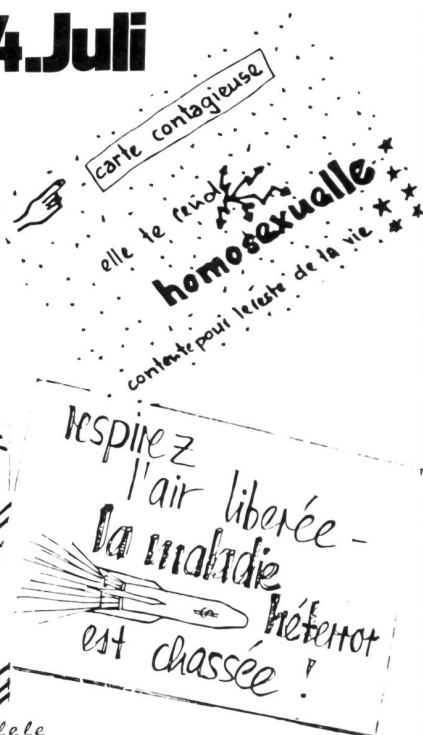 4.Juli
carte contagieuse
elle te rend
homosexuelle
contente pour le reste de ta vie
respirez
l'air liberée -
la maladie
héterror
est chassée !
lele